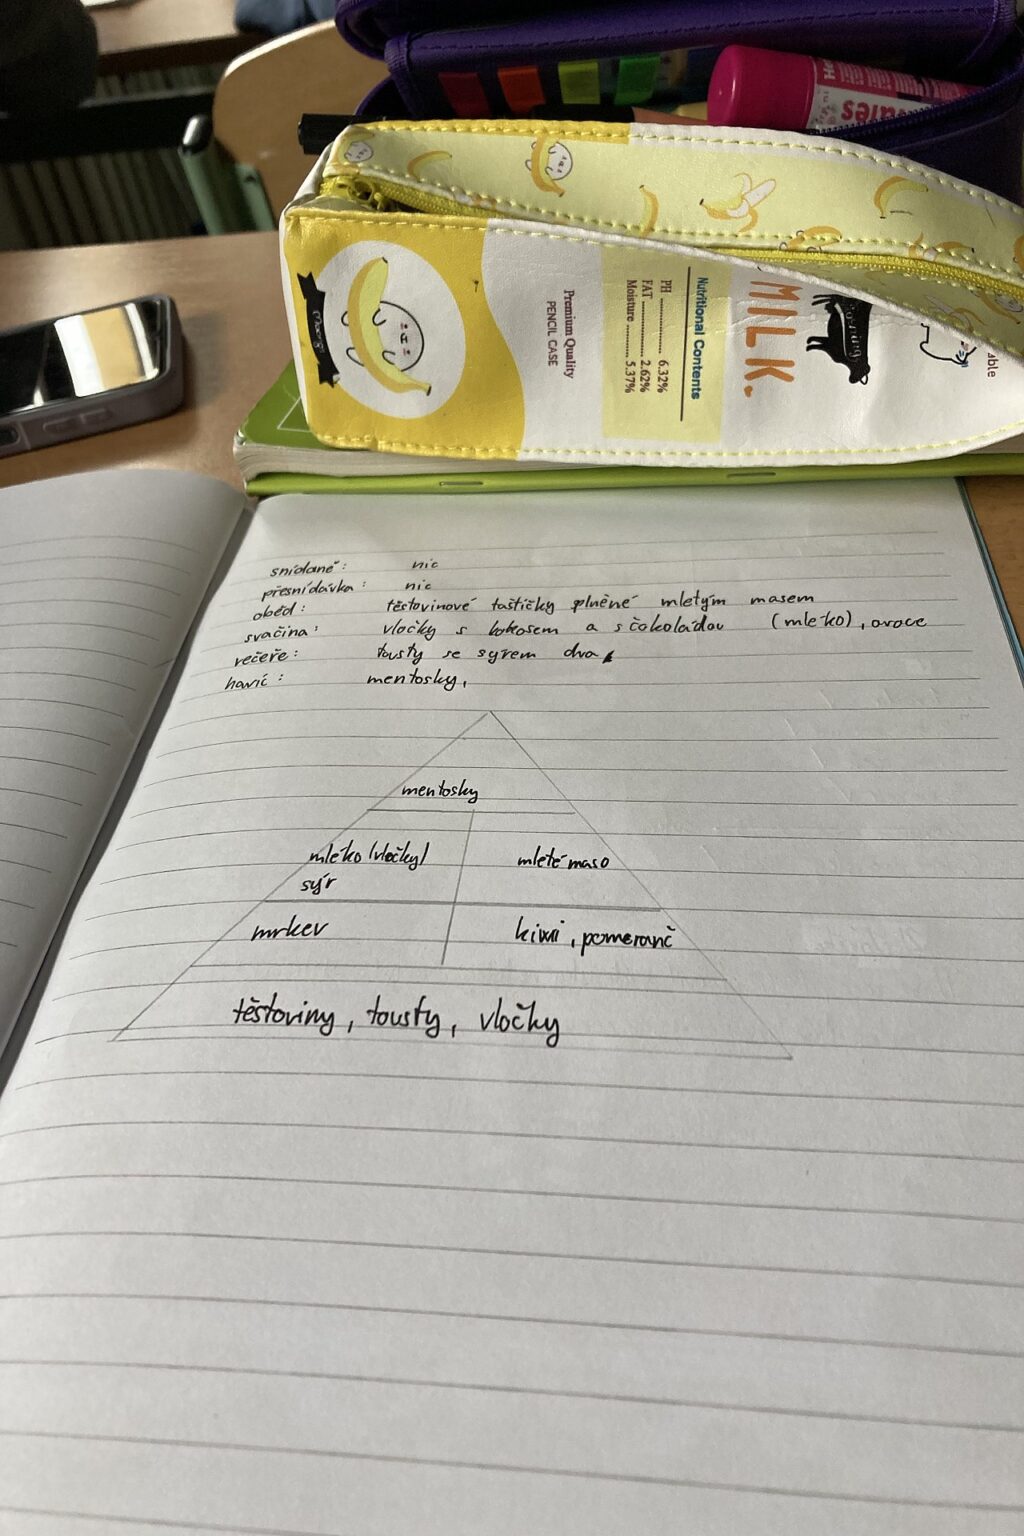 Premium Quality
PENCIL CASE
Nutritional Contents
PH ............ 6.32%
FAT ............ 2.62%
Moisture ............ 5.37%
MILK.
able
snídaně: nic
přesnídávka: nic
oběd: těstovinové taštičky plněné mletým masem
svačina: vločky s kokosem a s čokoládou (mléko), ovoce
večeře: tousty se sýrem dva
navíc: mentosky,
mentosky
mléko (vločky) mleté maso
sýr
mrkev kiwi, pomeranč
těstoviny, tousty, vločky